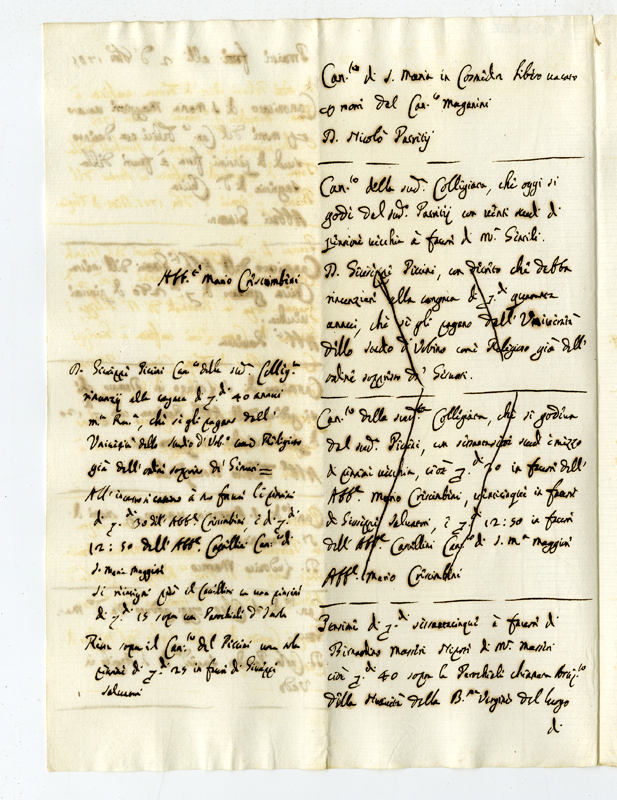 Can.to di S. Maria in Cosmedin libero vacato
p mori del Can.co Maganini
D. Nicolò Passitij
Can.to della sud.a Collegiata, che oggi si
gode dal sud.o Passitij con venti scudi di
pensioni vecchie à favore di M.r Gentili.
D. Giuseppe Piccini, con che debba
rinunziare alla congrua di quaranta
annui, che se gli pagano dall' Università
dello Studio d'Urbino come Religioso già dell'
ordine soppresso de' Gesuati.
Can.to della sud.a Collegiata, che si godeva
dal sud.o Piccini, con scudi e mezzo
di pensioni vecchie, cioè 30 in favore dell'
Abb.e Mario Criscimbini, venticinque in favore
di Giuseppe Salvatori, e 12:50 in favore
dell' Abb.e Capillini Can.co di S. M.a Maggiore
Abb.e Mario Criscimbini
Pensione di sessantacinque à favore di
Bernardino Mastri Nipote di M.r Mastri
cioè 40 sopra la Parochiale chiamata
della Natività della B.ma Vergine del luogo
di
Abb.e Mario Criscimbini
D. Giuseppe Picini Can.co della sud.a Colleg.ta
rinunzij alla congrua di 40 annui
che se gli pagano dall'
Università dello Studio d'Urb.o come Religioso
già dell'ordine soppresso de' Gesuati
All'incontro si cassino à suo favore le pensioni
di 30 dell' Abb.e Criscimbini, e di
12:50 dell' Abb.e Capillini Can.co di
S. Maria Maggiore
Si il Capillini con una pensione
di 15 sopra una Parochiale d'
Resta sopra il Can.to del Piccini una sola
pensione di 25 in favore di Giuseppe
Salvatori